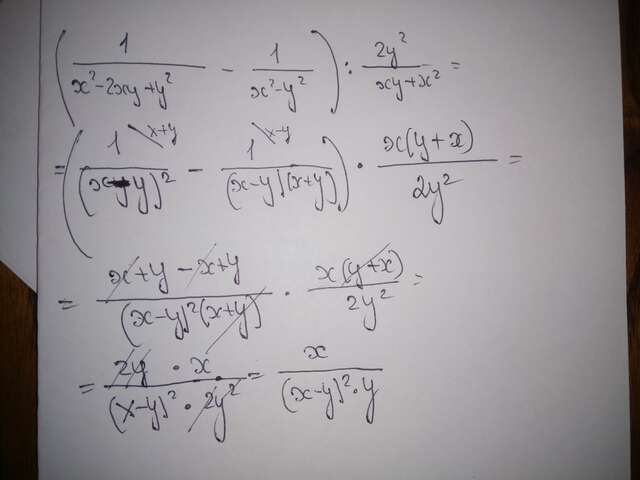 (1/(x²-2xy+y²) - 1/(x²-y²)) : 2y²/(xy+x²) =
= (1\x+y/(x-y)² - 1\x-y/((x-y)(x+y))) · x(y+x)/2y² =
= (x+y-x+y)/((x-y)²(x+y)) · x(y+x)/2y² =
= (2y · x)/((x-y)² · 2y²) = x/((x-y)² · y)